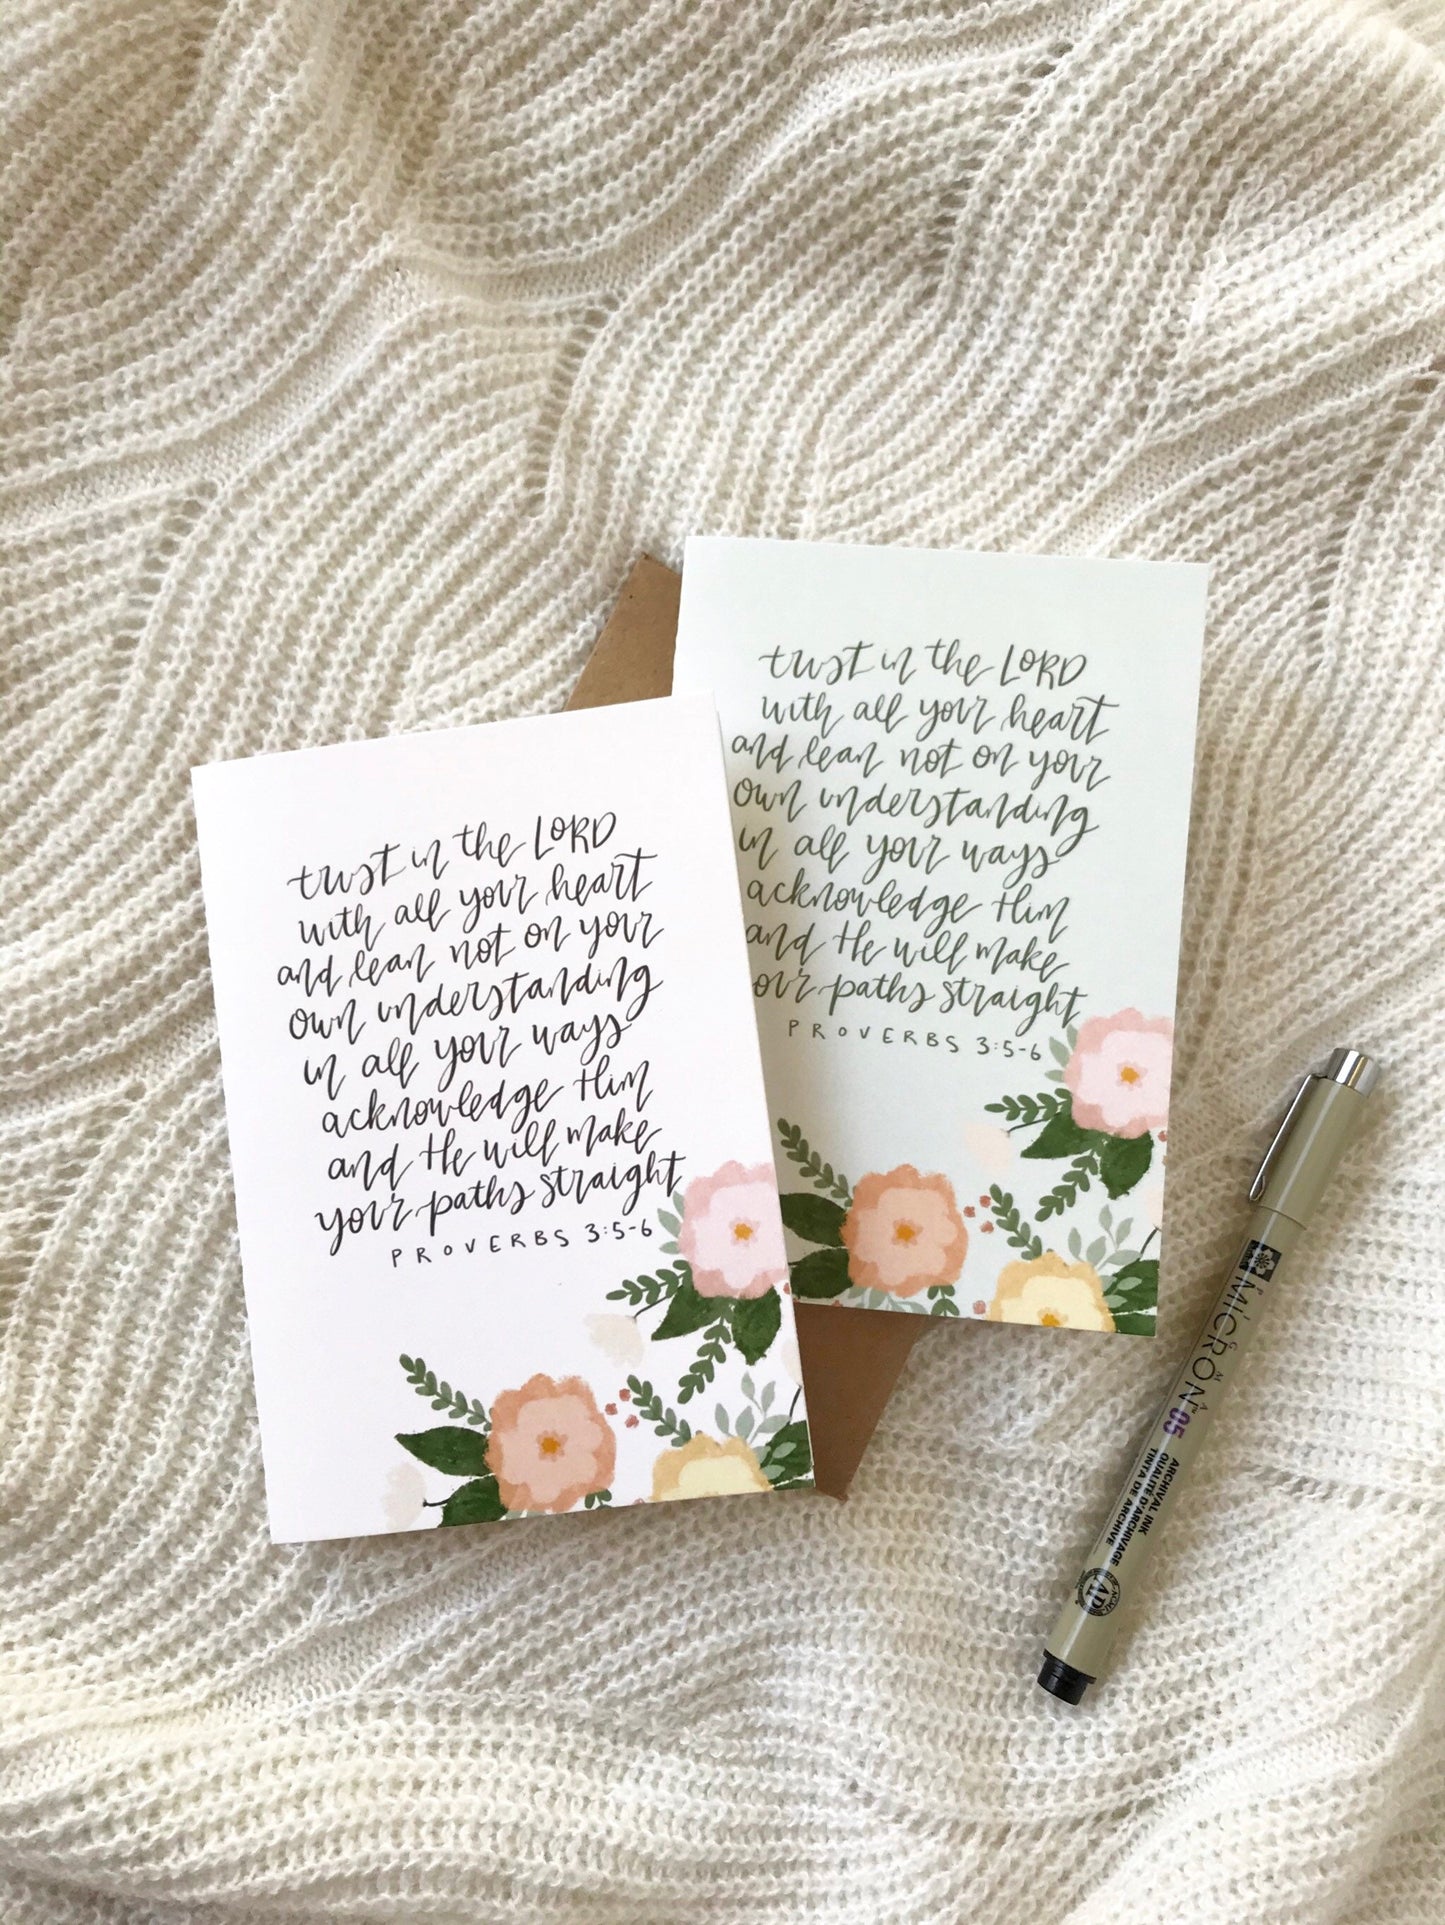 trust in the LORD
with all your heart
and lean not on your
own understanding
in all your ways
acknowledge Him
and He will make
your paths straight
PROVERBS 3:5-6
trust in the LORD
with all your heart
and lean not on your
own understanding
in all your ways
acknowledge Him
and He will make
our paths straight
PROVERBS 3:5-6
PIGMA
MICRON 05
ARCHIVAL INK
QUALITÉ D'ARCHIVAGE
TINTA DE ARCHIVE